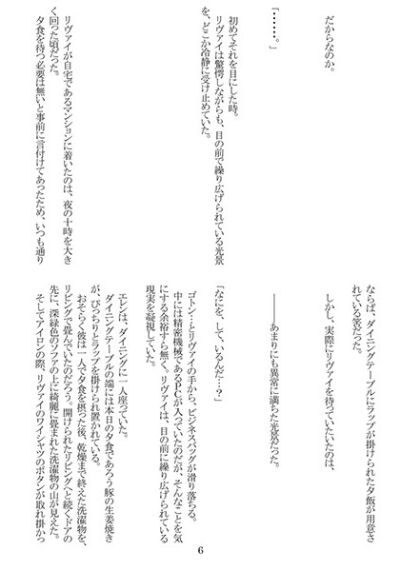 だからなのか。
「………。」
初めてそれを目にした時。
リヴァイは驚愕しながらも、目の前で繰り広げられている光景
を、どこか冷静に受け止めていた。
リヴァイが自宅であるマンションに着いたのは、夜の十時を大き
く回った頃だった。
夕食を待つ必要は無いと事前に言付けてあったため、いつも通り
ならば、ダイニングテーブルにラップが掛けられた夕飯が用意さ
れている筈だった。
しかし、実際にリヴァイを待っていたのは、
―――あまりにも異常に満ちた光景だった。
「なにを、して、いるんだ…？」
ゴトン…とリヴァイの手から、ビジネスバッグが滑り落ちる。
中には精密機械であるPCが入っていたのだが、そんなことを気
にする余裕すら無く。リヴァイは、目の前に繰り広げられている
現実を凝視していた。
エレンは、ダイニングに一人座っていた。
ダイニングテーブルの端には本日の夕食であろう豚の生姜焼き
が、ぴっちりとラップを掛けられ置かれている。
おそらく彼は一人で夕食を摂った後、乾燥まで終えた洗濯物を、
リビングで畳んでいたのだろう。開けられたリビングへと続くドアの
先に、深緑色のソファの上に綺麗に畳まれた洗濯物の山が見えた。
そしてアイロンの際、リヴァイのワイシャツのボタンが取れ掛かっ
6